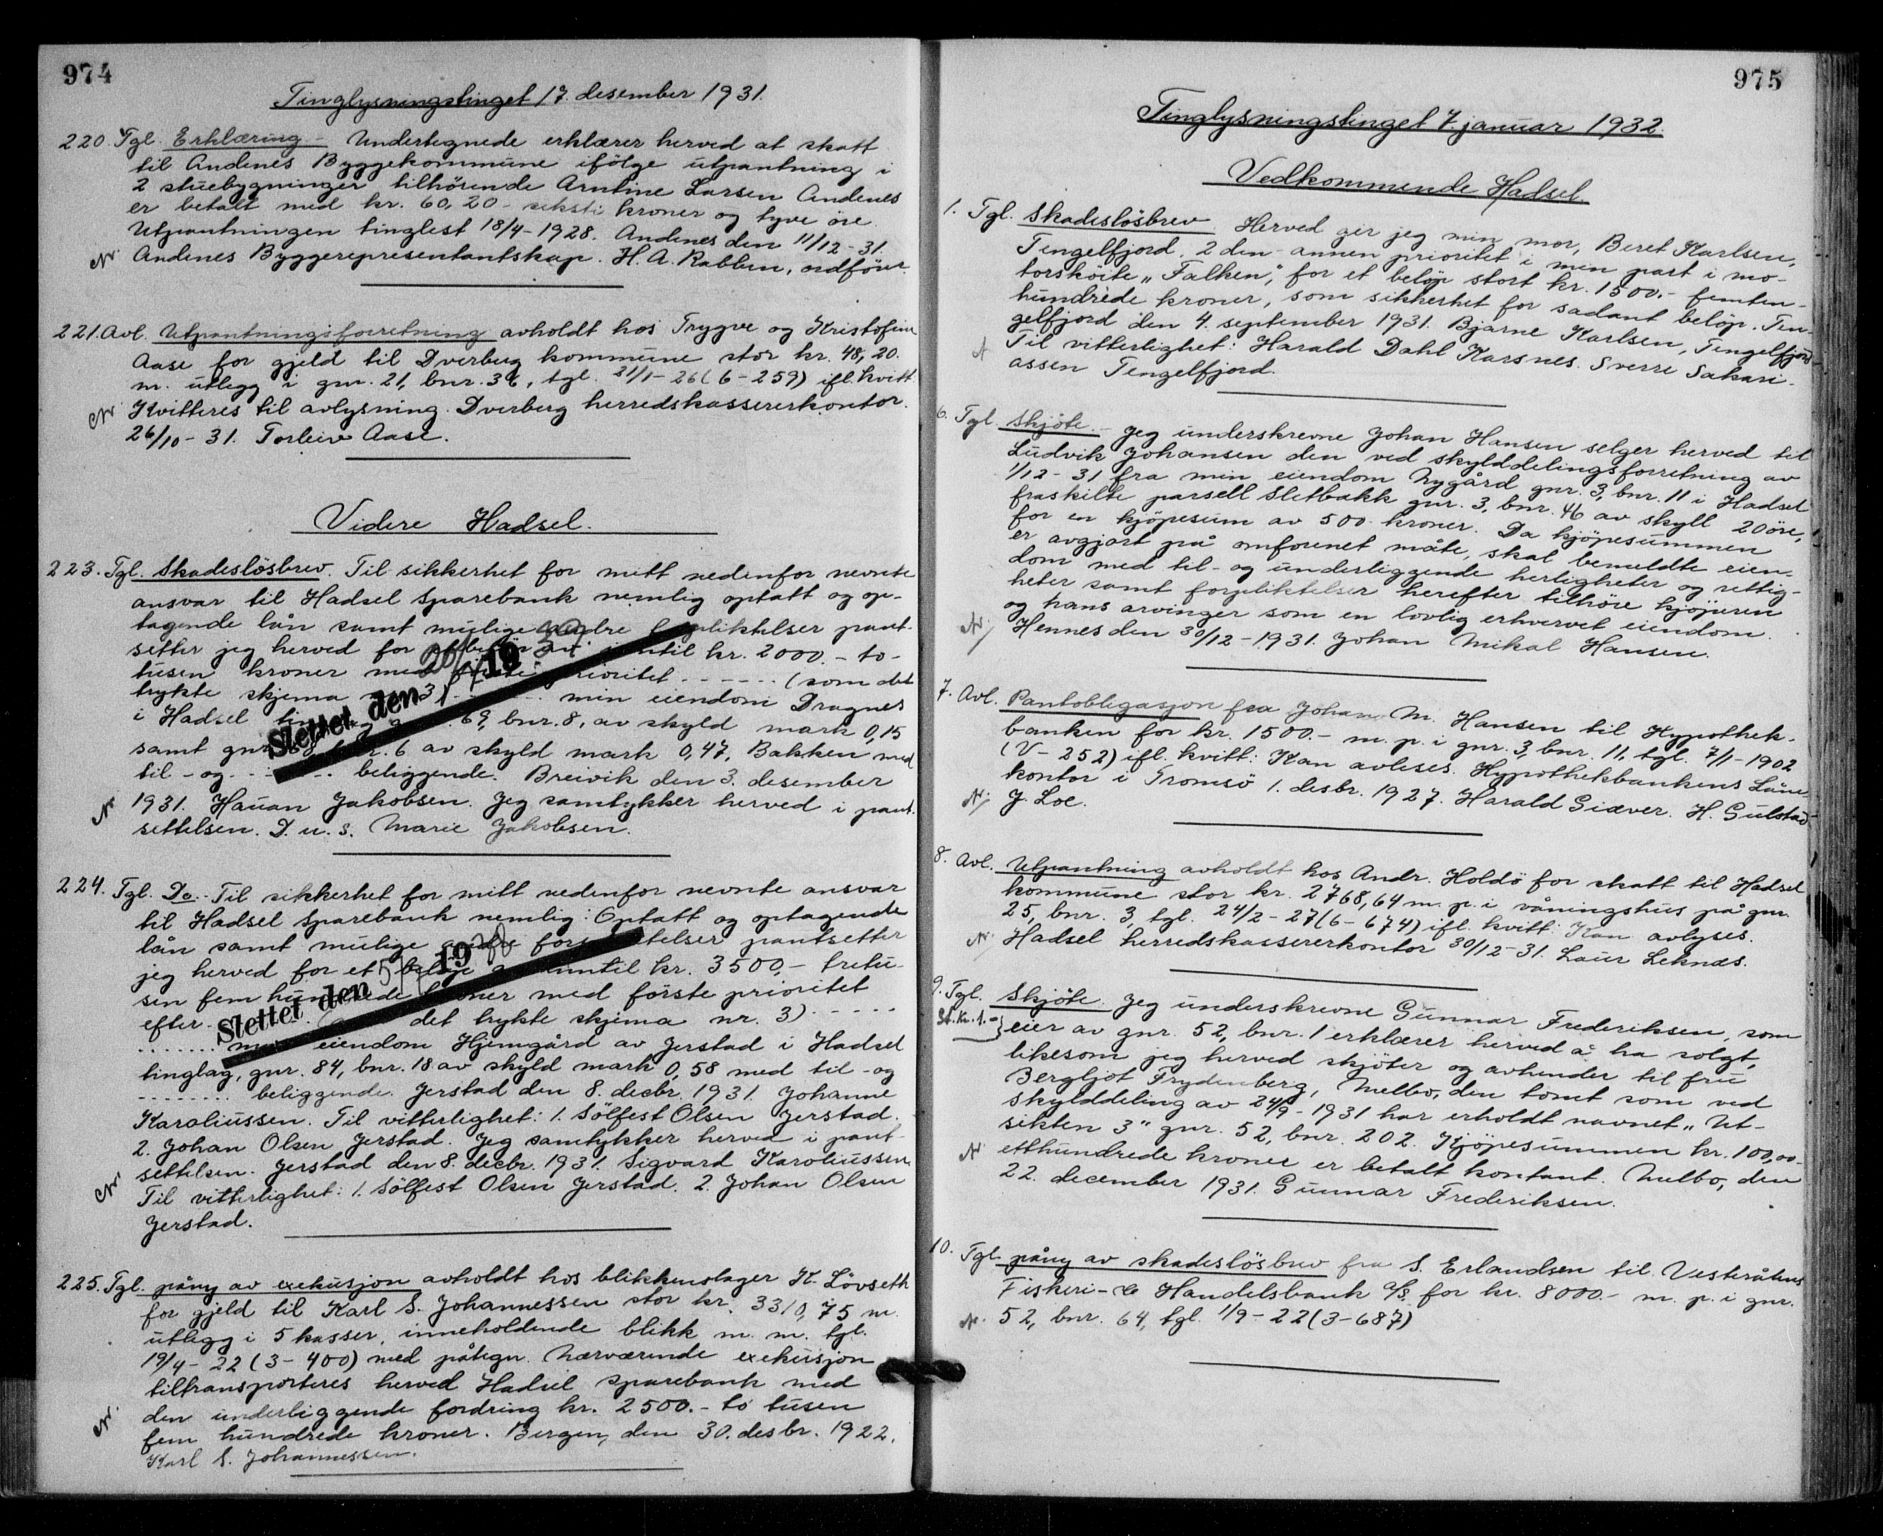 974
Tinglysningstinget 17. desember 1931.
220. Tgl. Erklæring - Undertegnede erklærer herved at skatt
til Andenes Byggekommune ifölge utpantning i
2 stuebygninger tilhörende Arntine Larsen Andenes
er betalt med kr. 60,20 - seksti kroner og tyve öre.
Utpantningen tinglest 18/4-1928. Andenes den 11/12-31.
Andenes Byggerepresentantskap. H. A. Rabben, ordförer.
221. Avl. Utpantningsforretning avholdt hos Trygve og Kristofine
Aase for gjeld til Dverberg kommune stor kr. 48,20.
m. utlegg i gnr. 21, bnr. 36, tgl. 21/1-26 (6-259) ifl. kvitt.
Kvitteres til avlysning. Dverberg herredskassererkontor.
26/10-31. Torleiv Aase.
Videre Hadsel.
223. Tgl. Skadeslösbrev. Til sikkerhet for mitt nedenfor nevnte
ansvar til Hadsel Sparebank nemlig optatt og op-
tagende lån samt mulige andre forpliktelser pant-
setter jeg herved for et belöp av inntil kr. 2000.- to-
tusen kroner med förste prioritet ...... (som det
trykte skjema nr. 3) ...... min eiendom Dragnes
i Hadsel tinglag gnr. 69, bnr. 8, av skyld mark 0,15
samt gnr. 68, bnr. 6 av skyld mark 0,47, Bakken med
til- og ...... beliggende. Breivik den 3. desember
1931. Hauan Jakobsen. Jeg samtykker herved i pant-
settelsen. D. u. s. Marie Jakobsen.
Slettet den 19
224. Tgl. Do. Til sikkerhet for mitt nedenfor nevnte ansvar
til Hadsel Sparebank nemlig: Optatt og optagende
lån samt mulige andre forpliktelser pantsetter
jeg herved for et belöp av inntil kr. 3500,- tretu-
sen fem hundrede kroner med förste prioritet
efter ...... det trykte skjema nr. 3) .....
........ min eiendom Hjemgård av Jerstad i Hadsel
tinglag, gnr. 84, bnr. 18 av skyld mark 0,58 med til- og
........ beliggende. Jerstad den 8. desbr. 1931. Johanne
Karoliussen. Til vitterlighet: 1. Sölfest Olsen Jerstad.
2. Johan Olsen Jerstad. Jeg samtykker herved i pant-
settelsen. Jerstad den 8. decbr. 1931. Sigvard Karoliussen.
Til vitterlighet: 1. Sölfest Olsen Jerstad. 2. Johan Olsen
Jerstad.
Slettet den 5/ 19
225. Tgl. påny av exekusjon avholdt hos blikkenslager K. Lövseth
for gjeld til Karl S. Johannessen stor kr. 3310,75 m.
utlegg i 5 kasser, inneholdende blikk m. m. tgl.
19/4-22 (3-400) med påtegn. Nærværende exekusjon
tiltransporteres herved Hadsel Sparebank med
den underliggende fordring kr. 2500.- to tusen
fem hundrede kroner. Bergen, den 30. desbr. 1922.
Karl S. Johannessen.
975
Tinglysningstinget 7. januar 1932.
Vedkommende Hadsel.
1. Tgl. Skadeslösbrev Herved gir jeg min mor, Beret Karlsen,
Tengelfjord, 2 den - annen prioritet i min part i mo-
torsköite "Falken", for et belöp stort kr. 1500.- femten-
hundrede kroner, som sikkerhet for sådant belöp. Ten-
gelfjord den 4. september 1931. Bjarne Karlsen, Tengelfjord
Til vitterlighet: Harald Dahl Karsnes. Sverre Sakari-
assen Tengelfjord.
6. Tgl. Skjöte. - Jeg underskrevne Johan Hansen selger herved til
Ludvik Johansen den ved skylddelingsforretning av
1/12-31 fra min eiendom Nygård gnr. 3, bnr. 11 i Hadsel
fraskilte parsell Sletbakk gnr. 3, bnr. 46 av skyll 20 öre,
for en kjöpesum av 500 kroner. Da kjöpesummen
er avgjort på omforenet måte, skal bemeldte eien-
dom med til- og underliggende herligheter og rettig-
heter samt forpliktelser herefter tilhöre kjöperen
og hans arvinger som en lovlig erhvervet eiendom.
Hennes den 30/12-1931. Johan Mikal Hansen.
7. Avl. Pantobligasjon fra Johan M. Hansen til Hypothek-
banken for kr. 1500.- m. p. i gnr. 3, bnr. 11, tgl. 7/1-1902
(V-252) ifl. kvitt: Kan avleses. Hypothekbankens Låne-
kontor i Tromsö 1. desbr. 1927. Harald Giæver. H. Gulstad.
J. Loe.
8. Avl. Utpantning avholdt hos Andr. Holdö for skatt til Hadsel
kommune stor kr. 2768,64 m. p. i våningshus på gnr.
25, bnr. 3, tgl. 24/2-27 (6-674) ifl. kvitt: Kan avlyses.
Hadsel herredskassererkontor 30/12-31. Laur Leknæs.
9. Tgl. Skjöte. Jeg underskrevne Gunnar Frederiksen, som
St. kr. 1.- eier av gnr. 52, bnr. 1 erklærer herved å ha solgt,
likesom jeg herved skjöter og avhender til fru
Bergljot Frydenberg, Melbo, den tomt som ved
skylddeling av 24/9-1931 har erholdt navnet "Ut-
sikten 3" gnr. 52, bnr. 202. Kjöpesummen kr. 100,00-
etthundrede kroner er betalt kontant. Melbo, den
22. december 1931. Gunnar Frederiksen.
10. Tgl. påny av skadeslösbrev fra S. Erlandsen til Vesterålens
Fiskeri- & Handelsbank a/s for kr. 8000.- m. p. i gnr.
52, bnr. 64, tgl. 1/9-22 (3-687)